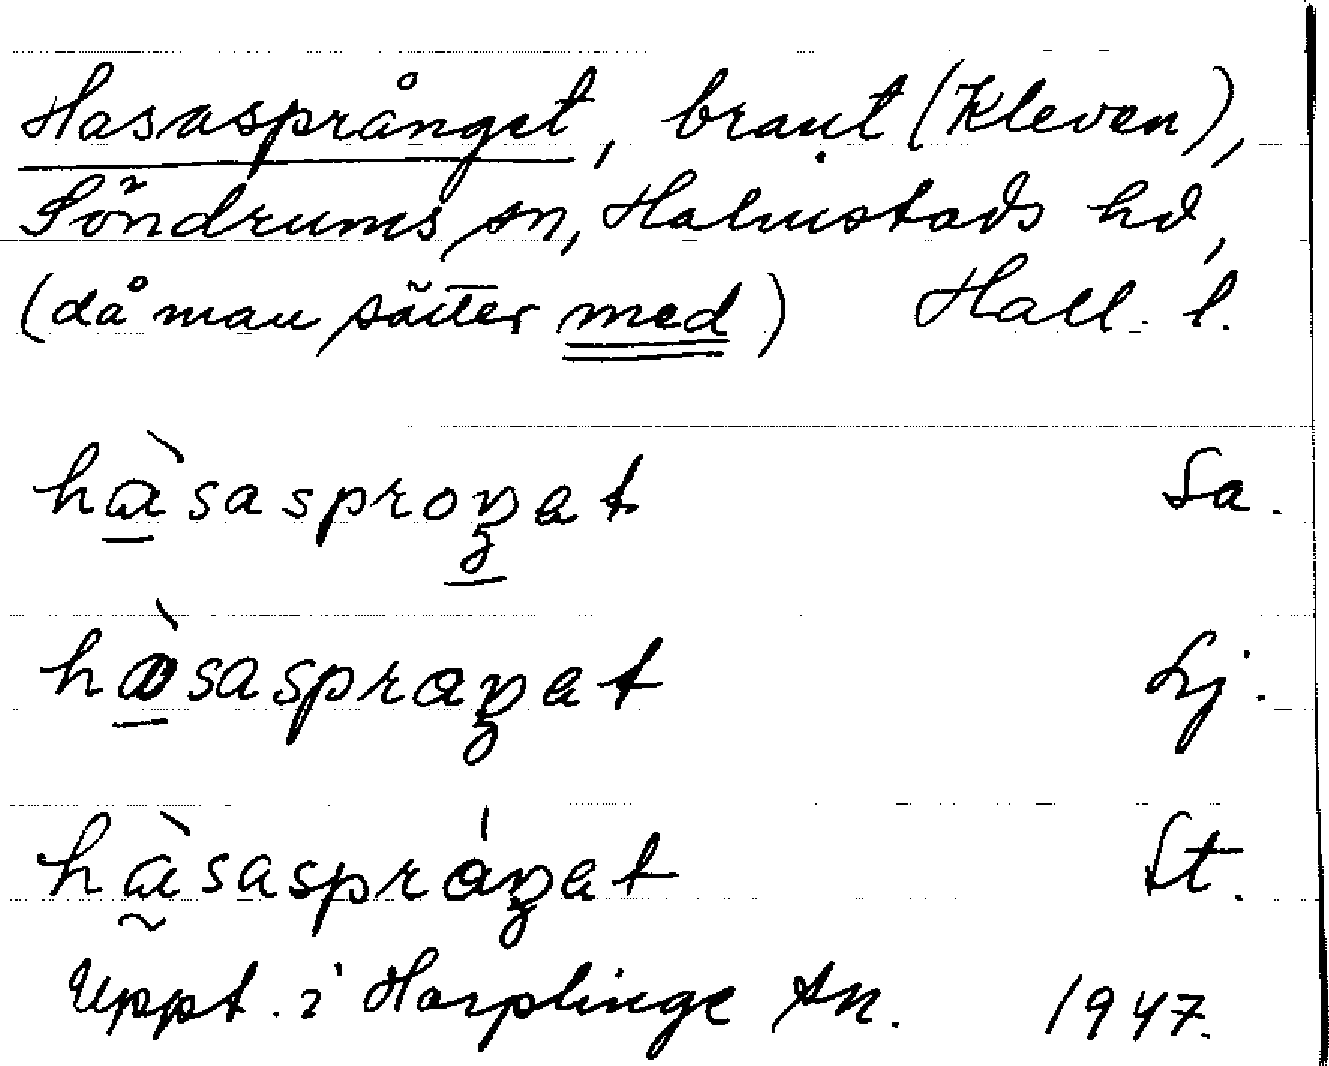 Hasasprånget, brant (Kleven),
Söndrums sn, Halmstads hd,
(då man sätter med) Hall. l.
hàsasproŋat Sa.
hàsaspraŋat Lj.
hàsaspráŋat St.
Uppt. i Harplinge sn. 1947.